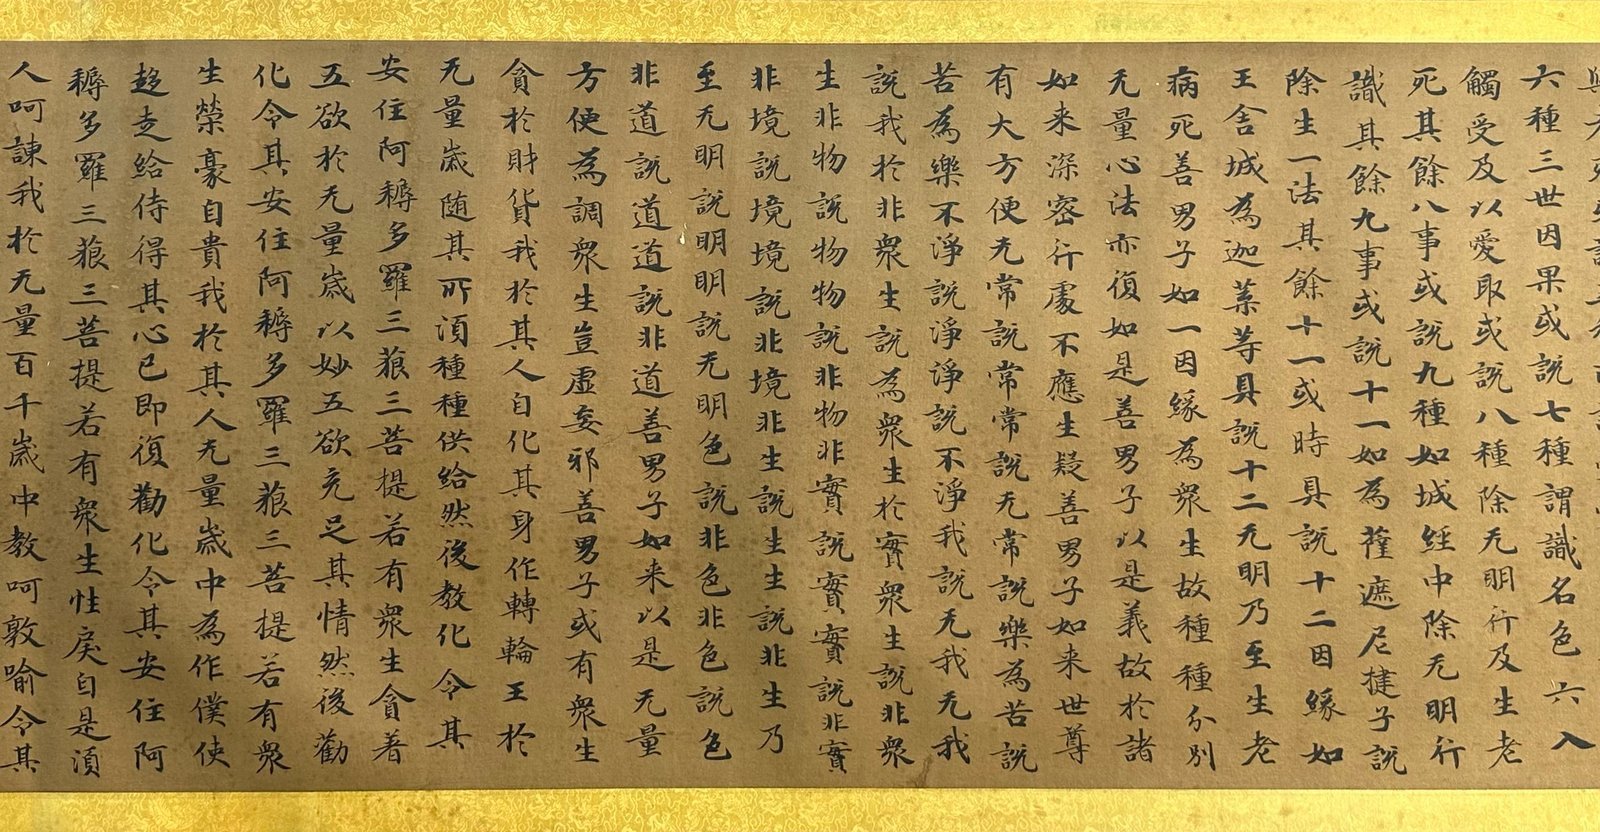 六種三世因果或說七種謂識名色六入
觸受及以愛取或說八種除无明行及生老
死其餘八事或說九種如城經中除无明行
識其餘九事或說十一如為薩遮尼揵子說
除生一法其餘十一或時具說十二因緣如
王舍城為迦葉等具說十二无明乃至生老
病死善男子如一因緣為衆生故種種分別
无量心法亦復如是善男子以是義故於諸
如来深密行處不應生疑善男子如来世尊
有大方便无常說常常說无常說樂為苦說
苦為樂不淨說淨淨說不淨我說无我无我
說我於非衆生說為衆生於實衆生說非衆
生非物說物物說非物非實說實實說非實
非境說境境說非境非生說生生說非生乃
至无明說明明說无明色說非色非色說色
非道說道道說非道善男子如来以是无量
方便為調衆生豈虛妄邪善男子或有衆生
貪於財貨我於其人自化其身作轉輪王於
无量歲随其所湏種種供給然後教化令其
安住阿耨多羅三藐三菩提若有衆生貪著
五欲於无量歲以妙五欲充足其情然後勸
化令其安住阿耨多羅三藐三菩提若有衆
生榮豪自貴我於其人无量歲中為作僕使
趍走給侍得其心已即復勸化令其安住阿
耨多羅三藐三菩提若有衆生性戾自是湏
人呵諫我於无量百千歲中教呵敦喻令其